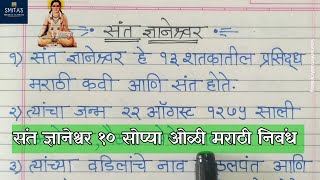 SMITA'S
संत ज्ञानेश्वर
१) संत ज्ञानेश्वर हे १३ शतकातील प्रसिद्ध
मराठी कवी आणि संत होते.
२) त्यांचा जन्म २२ ऑगस्ट १२७५ साली
संत ज्ञानेश्वर १० सोप्या ओळी मराठी निबंध
३) त्यांच्या वडिलांचे नाव कलपंत आणि